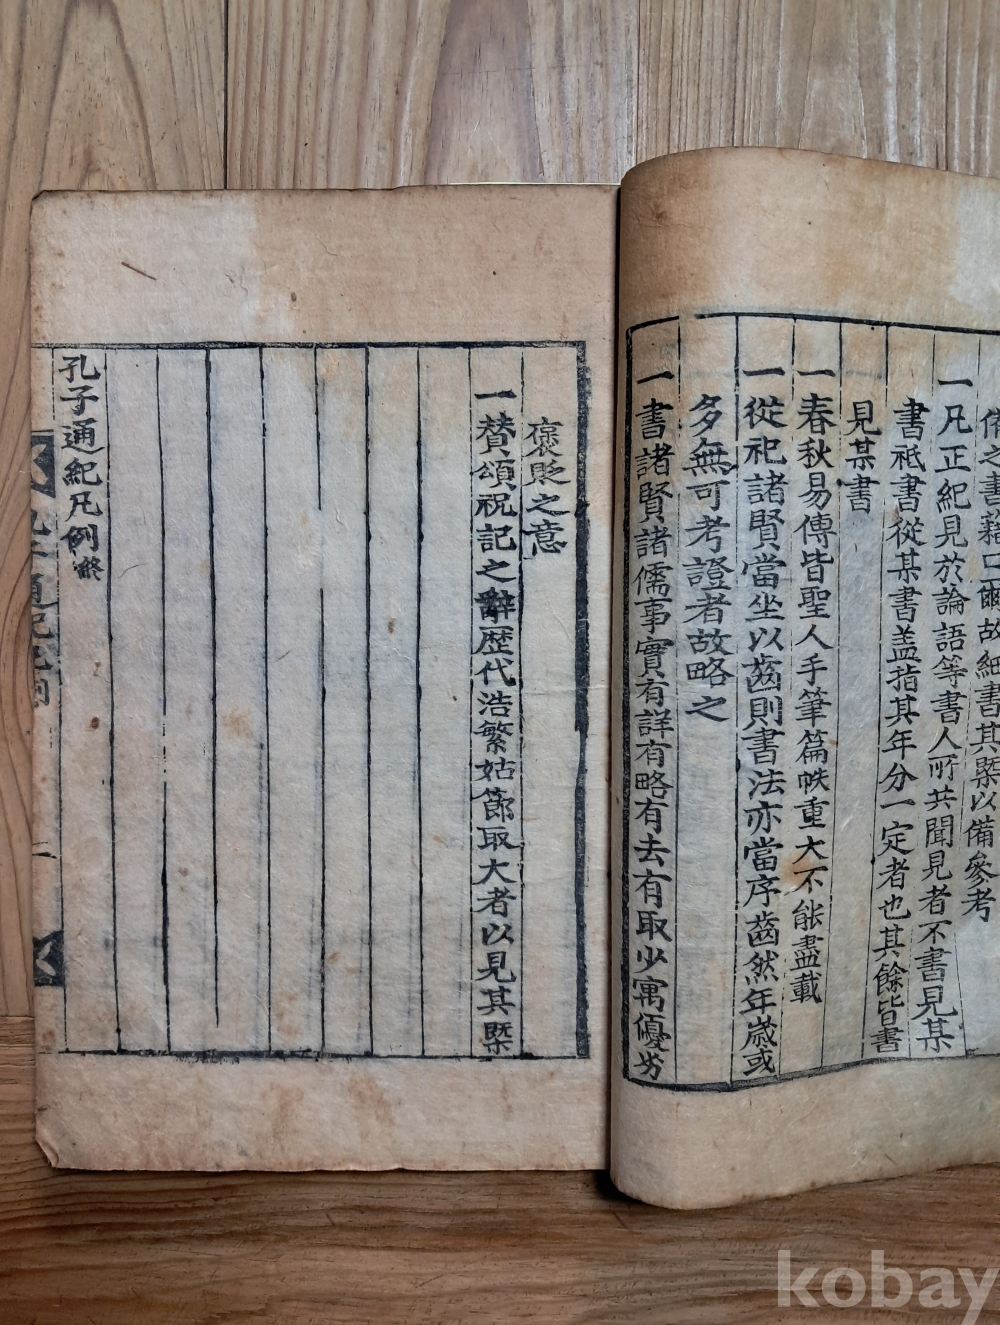 備之書藉口爾故紀書其槩以備參考
一凡正紀見於論語等書人所共聞見者不書見某
書祗書從某書盖指其年分一定者也其餘皆書
見某書
一春秋易傳皆聖人手筆篇帙重大不能盡載
一從祀諸賢當坐以齒則書法亦當序齒然年歲或
多無可考證者故略之
一書諸賢諸儒事實有詳有略有去有取少寓優劣
褒貶之意
一賛頌祝記之辭歴代浩繁姑節取大者以見其槩
孔子通紀凡例終
孔子通紀凡例
二
kobay